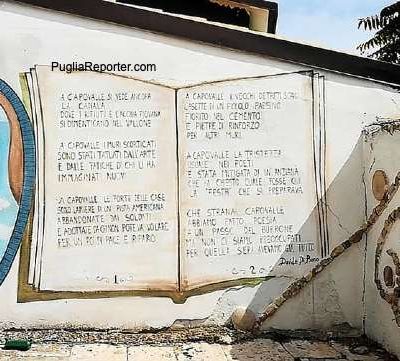 PugliaReporter.com
A CAPOVALLE SI VEDE ANCORA
LA CANALA
DOVE I RIFIUTI E L'ACQUA PIOVANA
SI DIMENTICANO NEL VALLONE
A CAPOVALLE I MURI SCORTICATI
SONO STATI TATUATI DALL'ARTE
E DALLE FATICHE DI CHI LI HA
IMMAGINATI NUOVI
A CAPOVALLE LE PORTE DELLE CASE
SONO LAMIERE DI UN PONTE AMERICANA
ABBANDONATE DAI SOLDATI
E ADOTTATE DA CHI NON POTEVA VOLARE
PER UN PO' DI PACE E RIPARO
1
A CAPOVALLE I VECCHI DETRITI SONO
CASETTE DI UN PICCOLO PAESINO
FIORITO NEL CEMENTO
E PIETRE DI RINFORZO
PER ALTRI MURI
A CAPOVALLE LA TRISTEZZA
COMUNE NEI POETI
È STATA MITIGATA DI UN'ANZIANA
CHE HA CHIESTO QUALE FOSSE QUI
LA FESTA CHE SI PREPARAVA
CHE STRANA CAPOVALLE
ABBIAMO FATTO POESIA
A UN PASSO DEL BURRONE
MA NON CI SIAMO PREOCCUPATI
PER QUELLA SERA AVEVAMO
2
Davide Di